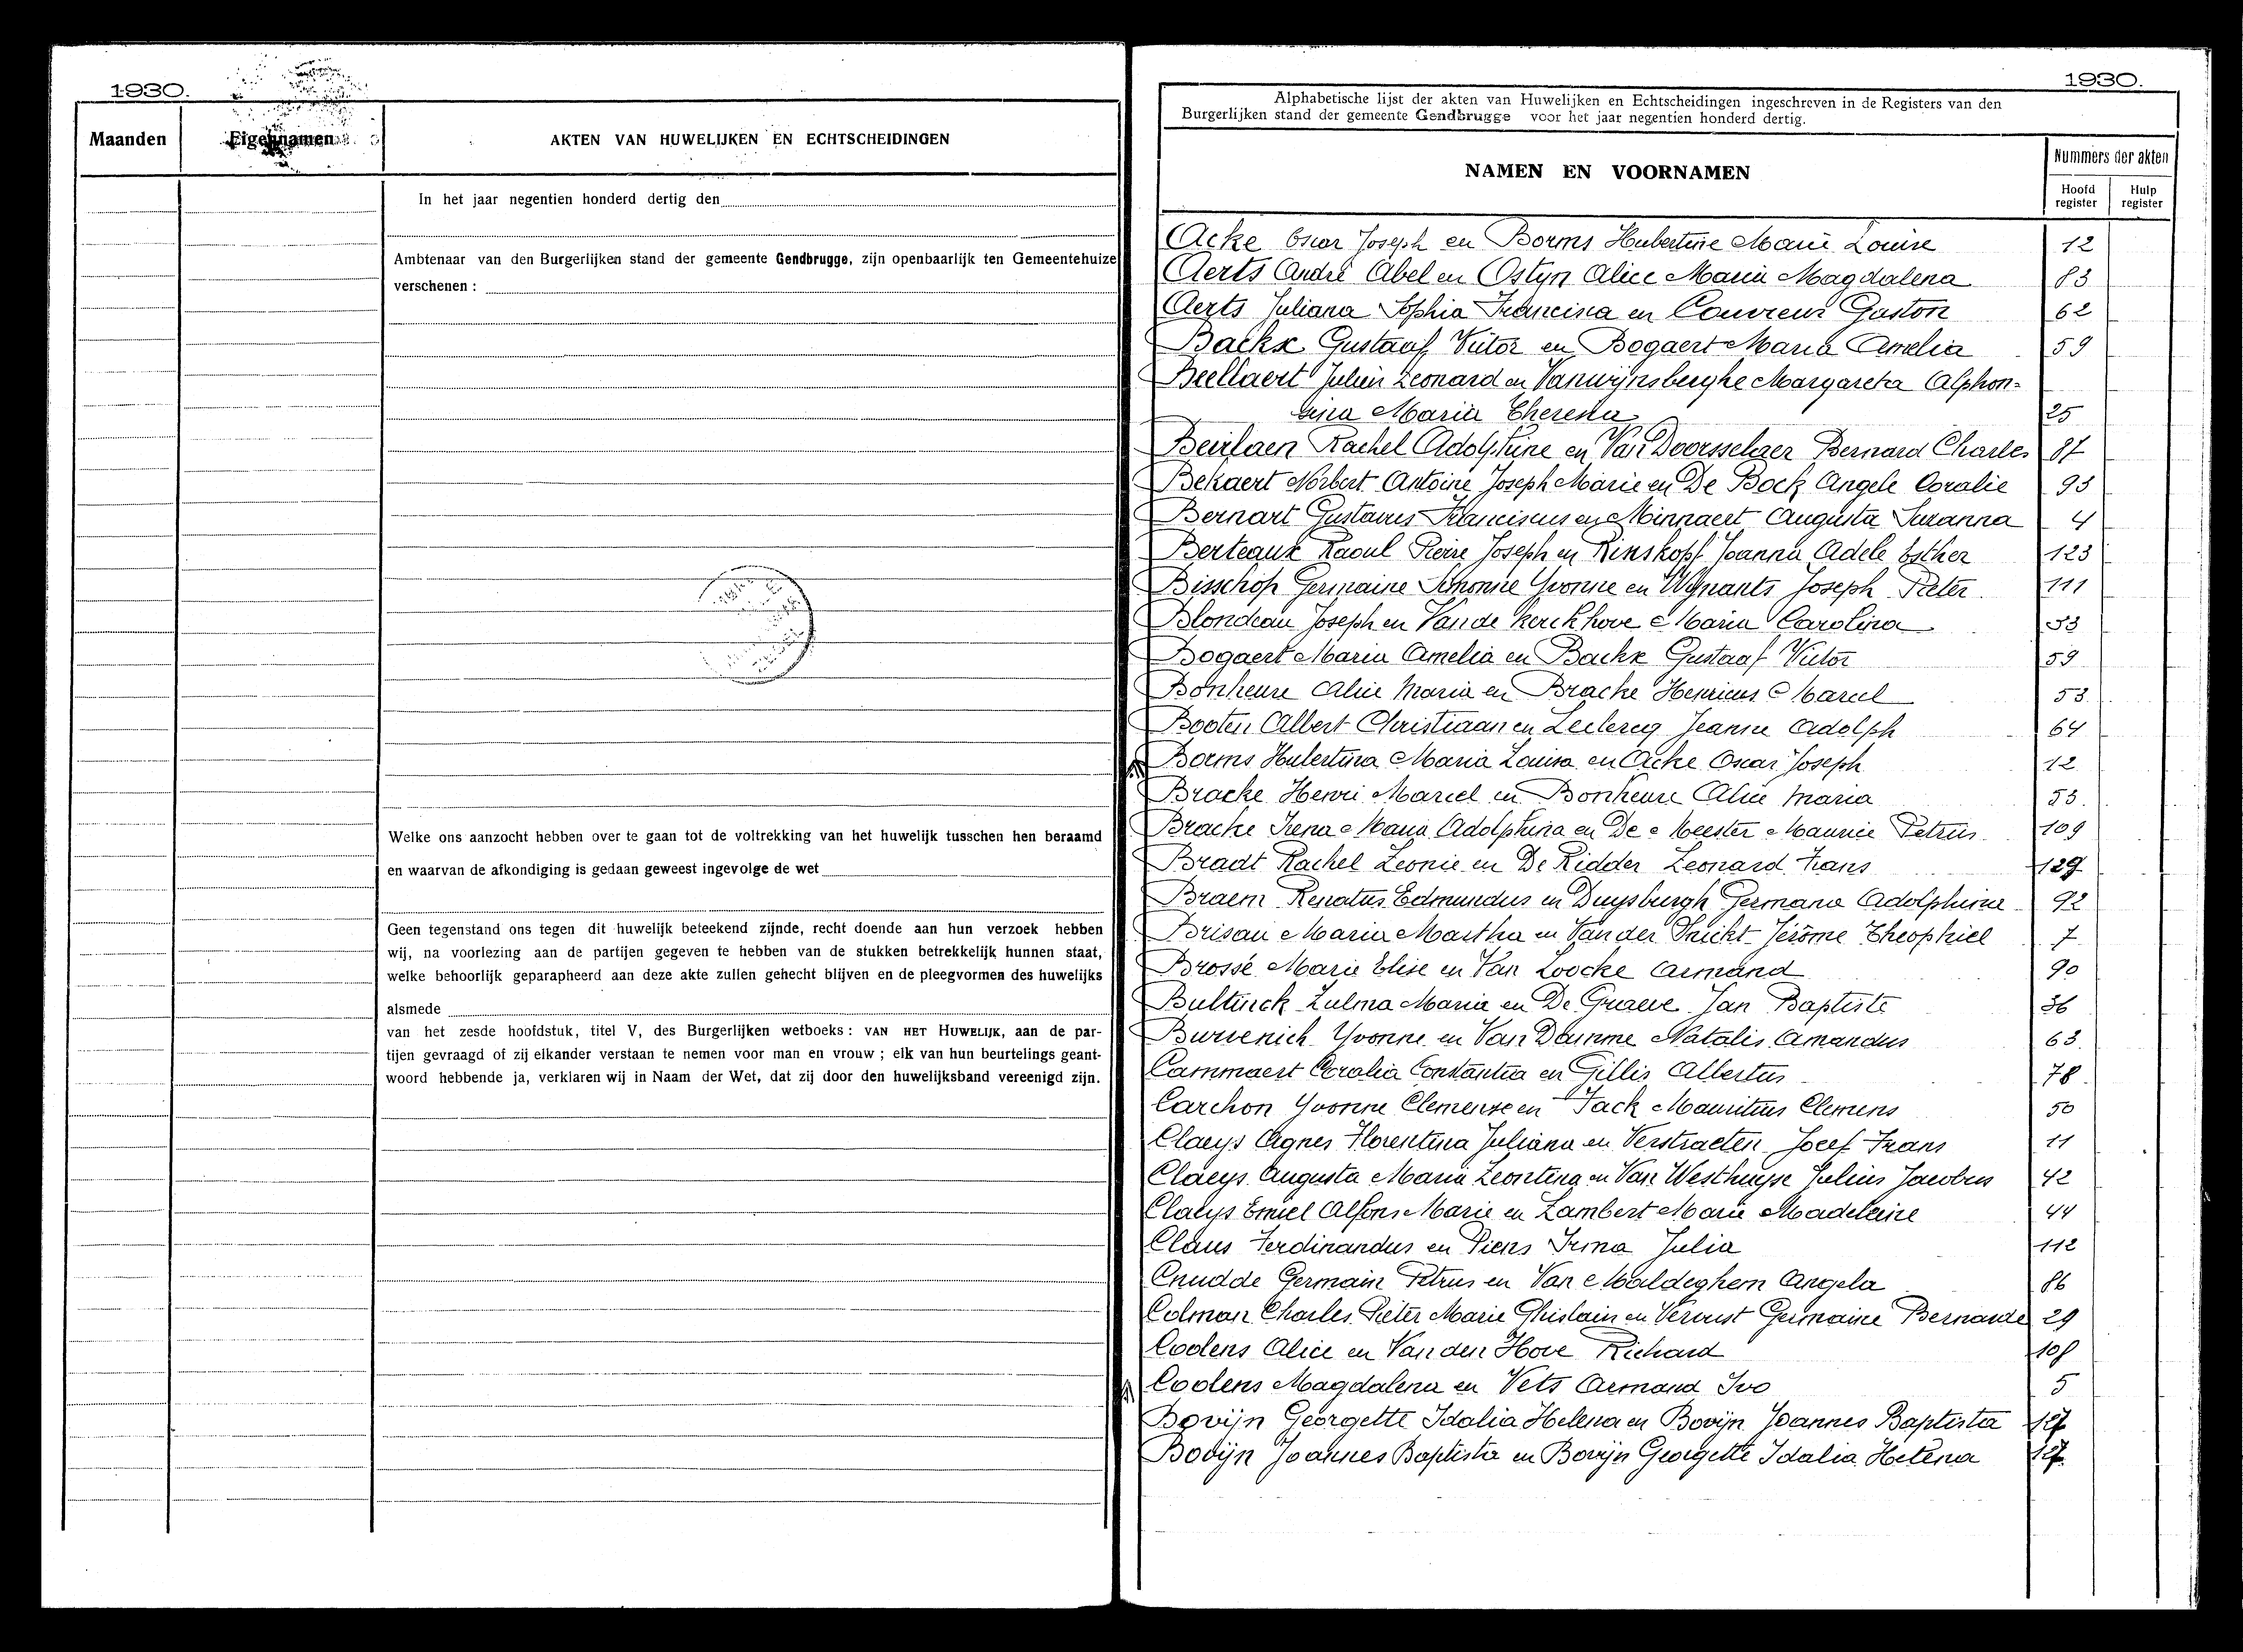 1930.
Maanden
Eigennamen
AKTEN VAN HUWELIJKEN EN ECHTSCHEIDINGEN
In het jaar negentien honderd dertig den
Ambtenaar van den Burgerlijken stand der gemeente Gendbrugge, zijn openbaarlijk ten Gemeentehuize
verschenen :
Welke ons aanzocht hebben over te gaan tot de voltrekking van het huwelijk tusschen hen beraamd
en waarvan de afkondiging is gedaan geweest ingevolge de wet
Geen tegenstand ons tegen dit huwelijk beteekend zijnde, recht doende aan hun verzoek hebben
wij, na voorlezing aan de partijen gegeven te hebben van de stukken betrekkelijk hunnen staat,
welke behoorlijk geparapheerd aan deze akte zullen gehecht blijven en de pleegvormen des huwelijks
alsmede
van het zesde hoofdstuk, titel V, des Burgerlijken wetboeks : VAN HET HUWELIJK, aan de par-
tijen gevraagd of zij elkander verstaan te nemen voor man en vrouw ; elk van hun beurtelings geant-
woord hebbende ja, verklaren wij in Naam der Wet, dat zij door den huwelijksband vereenigd zijn.
1930.
Alphabetische lijst der akten van Huwelijken en Echtscheidingen ingeschreven in de Registers van den
Burgerlijken stand der gemeente Gendbrugge voor het jaar negentien honderd dertig.
NAMEN EN VOORNAMEN
Nummers der akten
Hoofd register
Hulp register
Acke Oscar Joseph en Borms Hubertine Marie Louise 12
Aerts André Abel en Ostyn Alice Maria Magdalena 83
Aerts Juliana Sophia Francisca en Couvreur Gaston 62
Backx Gustaaf Victor en Bogaert Maria Amelia 59
Beellaert Julien Leonard en Vanwijnsberghe Margareta Alphon-
sina Maria Theresia 25
Beirlaen Rachel Adolphine en Van Doorsselaer Bernard Charles 87
Bekaert Norbert Antoine Joseph Marie en De Bock Angele Coralie 93
Bernart Gustavus Franciscus en Minnaert Augusta Suzanna 4
Berteaux Raoul Pierre Joseph en Rinskopf Joanna Adele Esther 123
Bisschop Germaine Simonne Yvonne en Wijnants Joseph Pieter 111
Blondeau Joseph en Van de Kerckhove Maria Carolina 33
Bogaert Maria Amelia en Backx Gustaaf Victor 59
Bonheure Alice Maria en Bracke Henricus Marcel 53
Booten Albert Christiaan en Leclercq Jeanne Adolph 64
Borms Hubertina Maria Louisa en Acke Oscar Joseph 12
Bracke Henri Marcel en Bonheure Alice Maria 53.
Bracke Irena Maria Adolphina en De Meester Maurice Petrus 109
Bradt Rachel Leonie en De Ridder Leonard Frans 129
Braem Renatus Edmundus en Duysburgh Germana Adolphine 92
Brisau Maria Martha en Van der Snickt Jérôme Theophiel 7
Brossé Marie Elise en Van Loocke Armand 90
Bultinck Zulma Maria en De Graeve Jan Baptiste 36
Burvenich Yvonne en Van Damme Natalis Amandus 63
Cammaert Coralia Constantia en Gillis Albertus 78
Carchon Yvonne Clemence en Tack Mauritius Clemens 50
Claeys Agnes Florentina Juliana en Verstraeten Jozef Frans 11
Claeys Augusta Maria Leontina en Van Westhuyse Julius Jacobus 42
Claeys Emiel Alfons Marie en Lambert Marie Madeleine 44
Claus Ferdinandus en Piens Irma Julia 112
Cnudde Germain Petrus en Van Maldeghem Angela 86
Colman Charles Pieter Marie Ghislain en Vervust Germaine Bernarde 29
Coolens Alice en Van den Hove Richard 108
Coolens Magdalena en Vets Armand Ivo 5
Bovijn Georgette Idalia Helena en Bovijn Joannes Baptista 127
Bovijn Joannes Baptista en Bovijn Georgette Idalia Helena 127